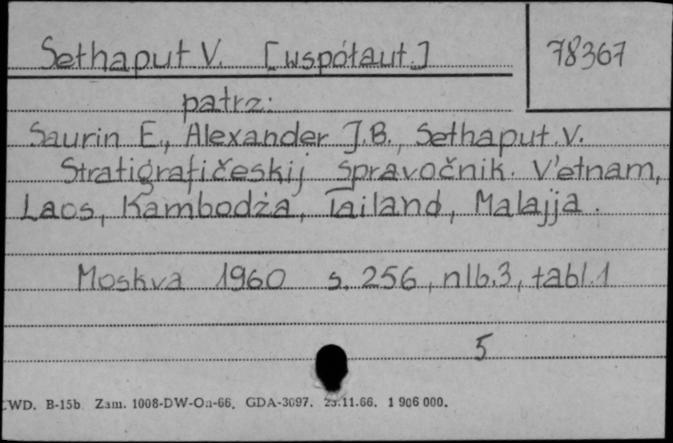 Sethaput V. [współaut.] 78367
patrz:
Saurin E., Alexander J.B., Sethaput. V.
Stratigrafičeskij spravočnik. V'etnam,
Laos, Kambodża, Tailand, Malajja.
Moskva 1960 s. 256, nlb.3, tabl.1
5
WD. B-15b Zam. 1008-DW-On-66. GDA-3097. 23.11.66. 1 906 000.